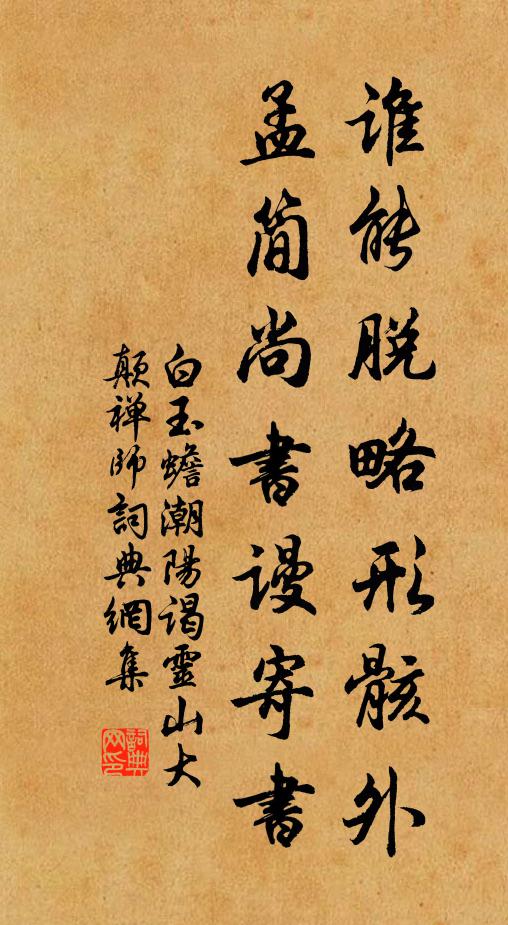 誰能脫略形骸外
孟簡尚書謾寄書
白玉蟾潮陽謁靈山大
顛禅師詞典網集
詞典
网印